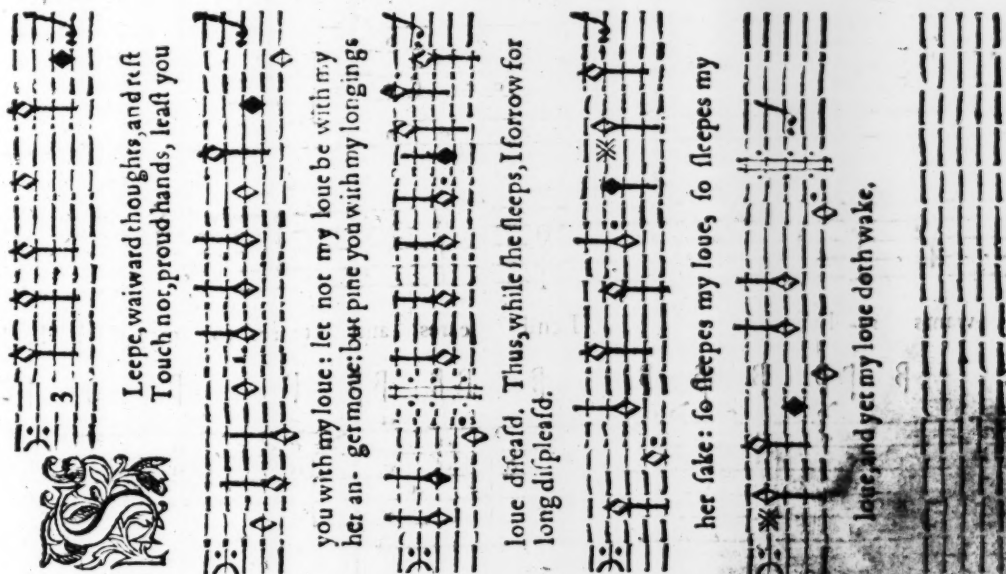 3
SLeepe, waiward thoughts, and rest
Touch nor, proud hands, least you
you with my loue: let not my loue be with my
her an- get moue: but pine you with my longings
loue diseasd. Thus, while she sleeps, I sorrow for
long displeasd.
her sake: so sleepes my loue, so sleepes my
loue, and yet my loue doth wake.